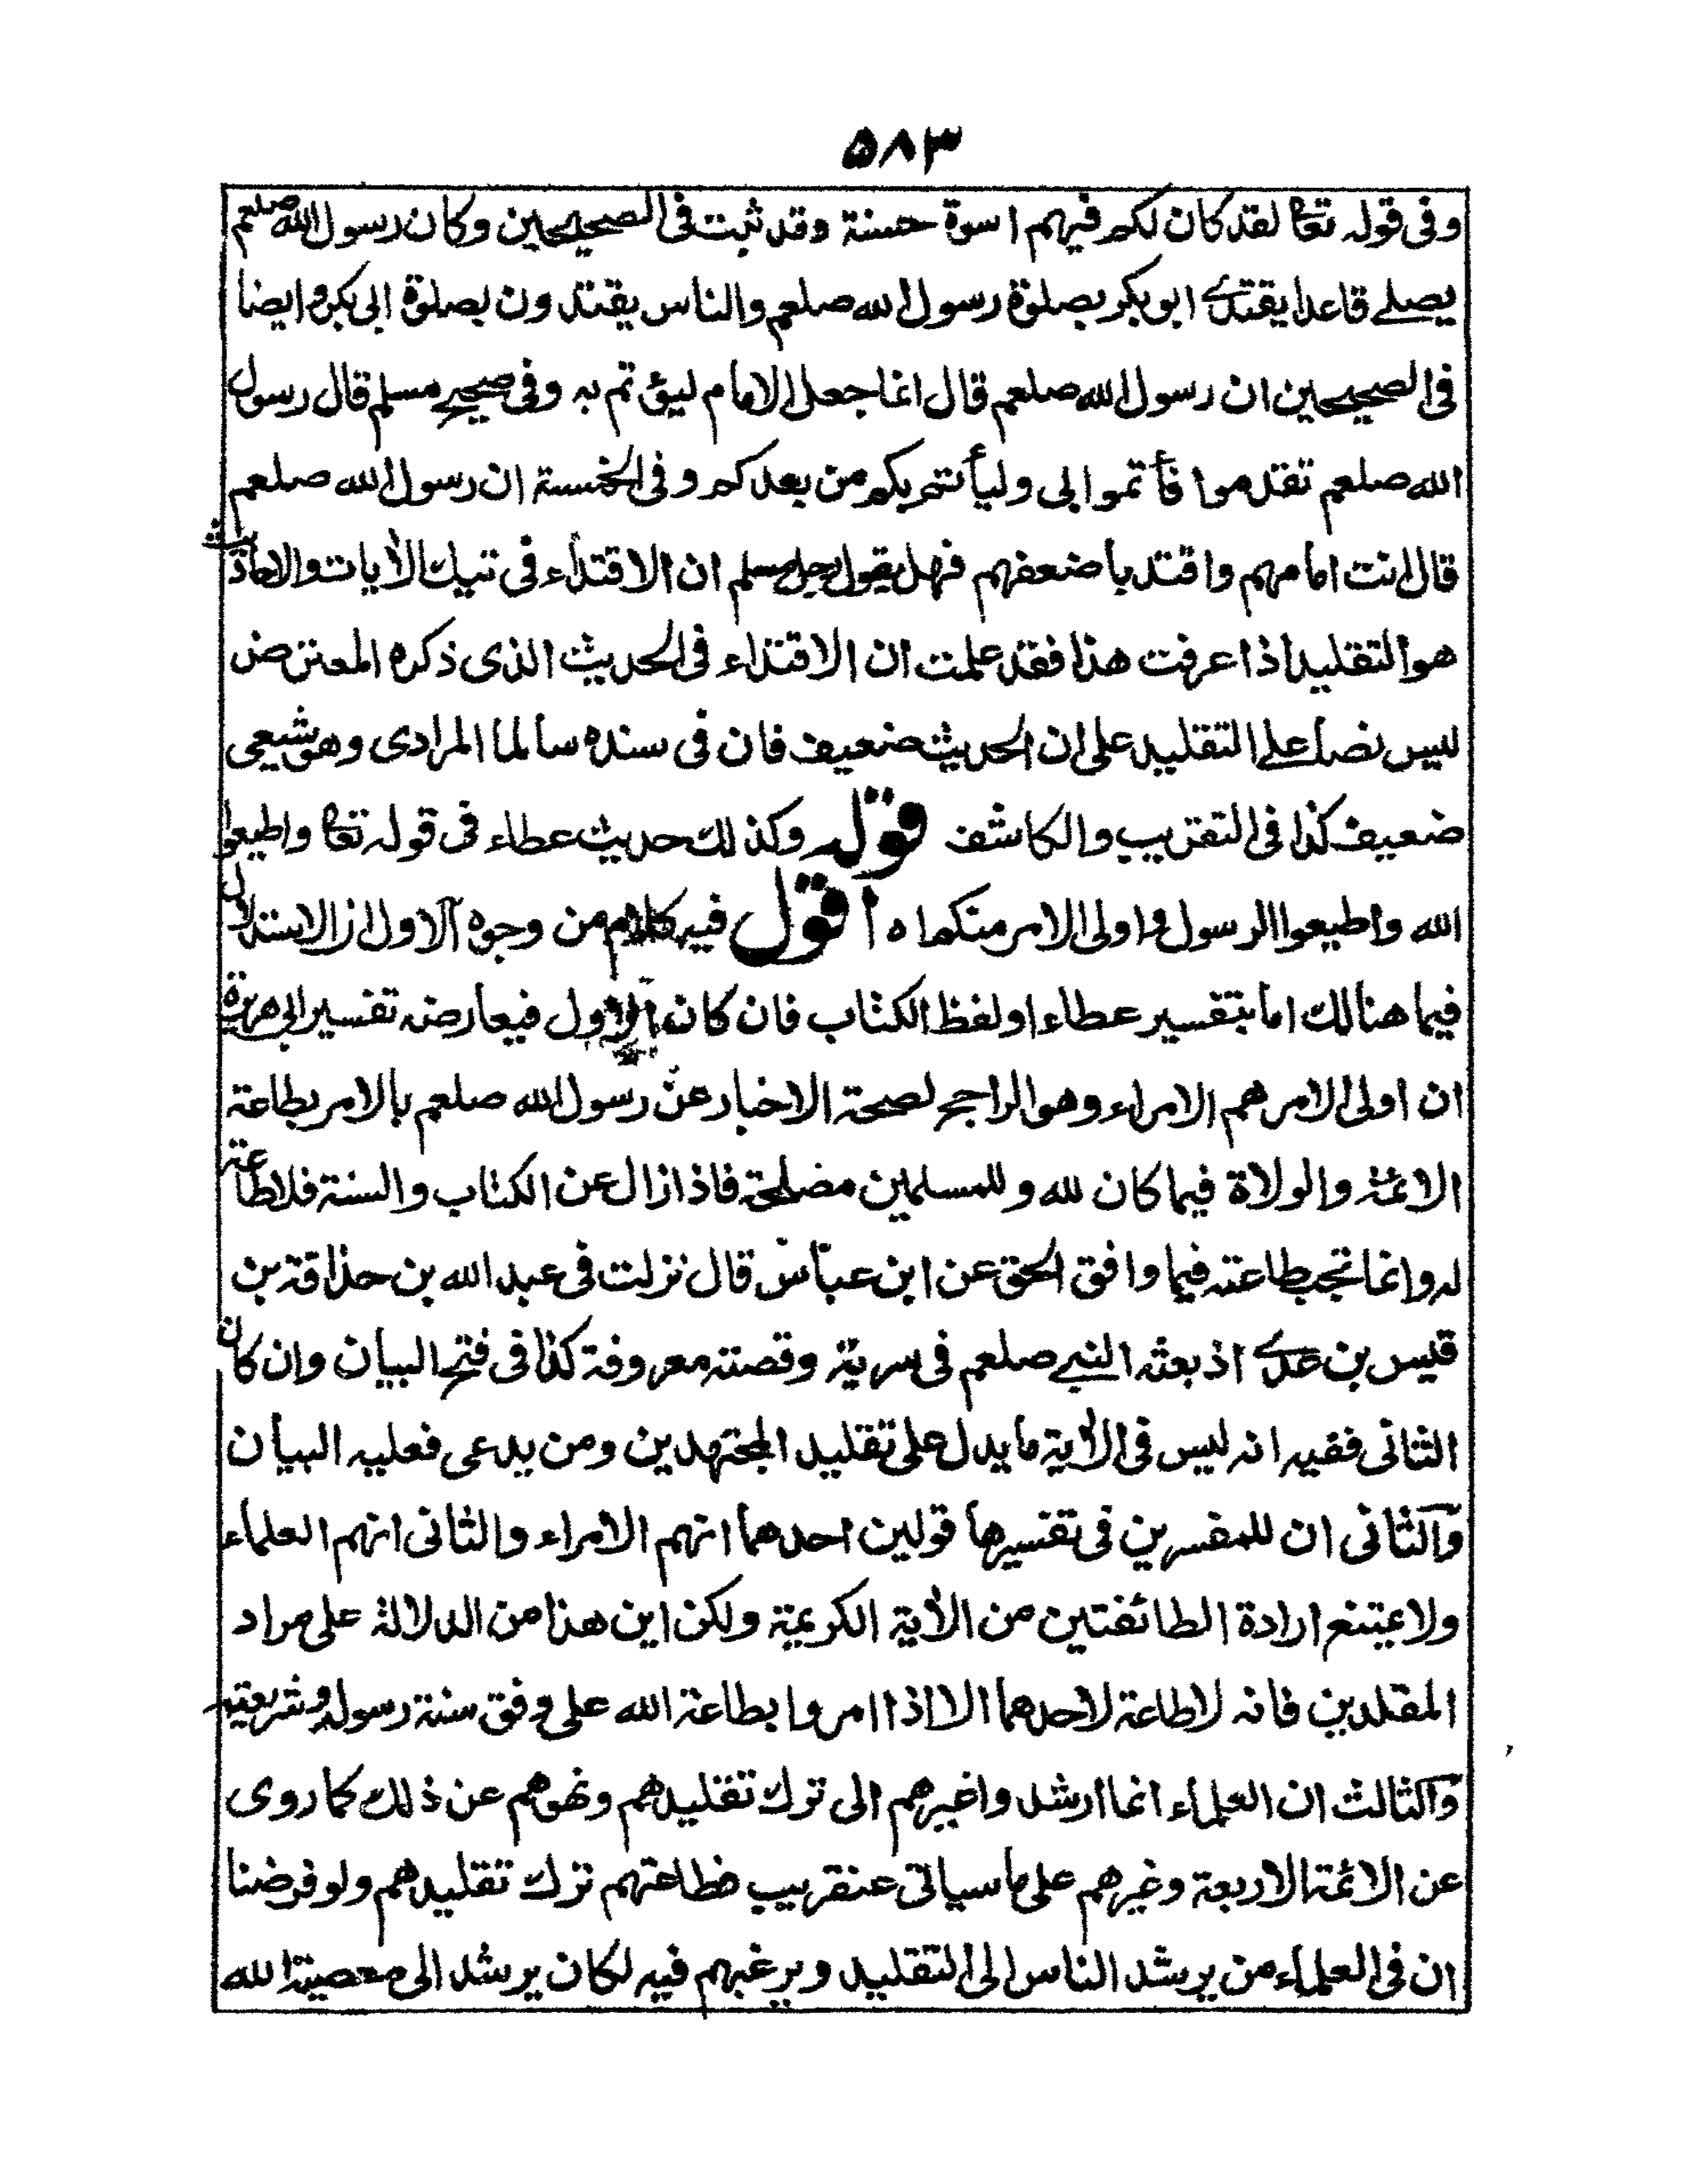 ٥٨٣
وفى قوله تعا لقد كان لكم فيهم اسوة حسنة وقد ثبت فى الصحيحين وكان رسول الله صلعم
يصلے قاعدا يقتدے ابو بكر بصلوة رسول الله صلعم والناس يقتدون بصلوة ابى بكر وايضا
فى الصحيحين ان رسول الله صلعم قال انما جعل الامام ليؤتم به وفى صحيح مسلم قال رسول
الله صلعم تقدموا فأتموا بى وليأتم بكم من بعدكم وفى الخمسة ان رسول الله صلعم
قال انت امامهم واقتد بأضعفهم فهل يقول رجل مسلم ان الاقتداء فى تيك الأيات والاحاديث
هو التقليد اذا عرفت هذا فقد علمت ان الاقتداء فى الحديث الذى ذكره المعترض
ليس نصا علے التقليد على ان الحديث ضعيف فان فى سنده سالما المرادى وهو شيعى
ضعيف كذا فى التقريب والكاشف قوله وكذلك حديث عطاء فى قوله تعا واطيعوا
الله واطيعوا الرسول واولى الامر منكم اه أقول فيه كلام من وجوه آلاول ان الاستدلال
فيما هنالك اما بتفسير عطاء او لفظ الكتاب فان كان الاول فيعارضه تفسير ابى هريرة
ان اولى الامر هم الامراء وهو الراجح لصحة الاخبار عن رسول الله صلعم بالامر بطاعة
الائمة والولاة فيما كان لله وللمسلمين مصلحة فاذا زال عن الكتاب والسنة فلا طاعة
له وانما تجب طاعته فيما وافق الحق عن ابن عباس قال نزلت فى عبد الله بن حذاقة بن
قيس بن عدے اذ بعثه النبے صلعم فى سرية وقصته معروفة كذا فى فتح البيان وان كان
الثانى ففيه انه ليس فى الأية ما يدل على تقليد المجتهدين ومن يدعى فعليه البيان
وآلثانى ان للمفسرين فى تفسيرها قولين احدهما انهم الامراء والثانى انهم العلماء
ولا يمتنع ارادة الطائفتين من الأية الكريمة ولكن اين هذا من الدلالة على مراد
المقلدين فانه لا طاعة لاحدهما الا اذا امروا بطاعة الله على وفق سنة رسوله وشريعته
وآلثالث ان العلماء انما ارشدوا غيرهم الى ترك تقليدهم ونهوهم عن ذلك كما روى
عن الائمة الاربعة وغيرهم على ما سياتى عنقريب فطاعتهم ترك تقليدهم ولو فرضنا
ان فى العلماء من يرشد الناس الى التقليد ويرغبهم فيه لكان يرشد الى معصية الله